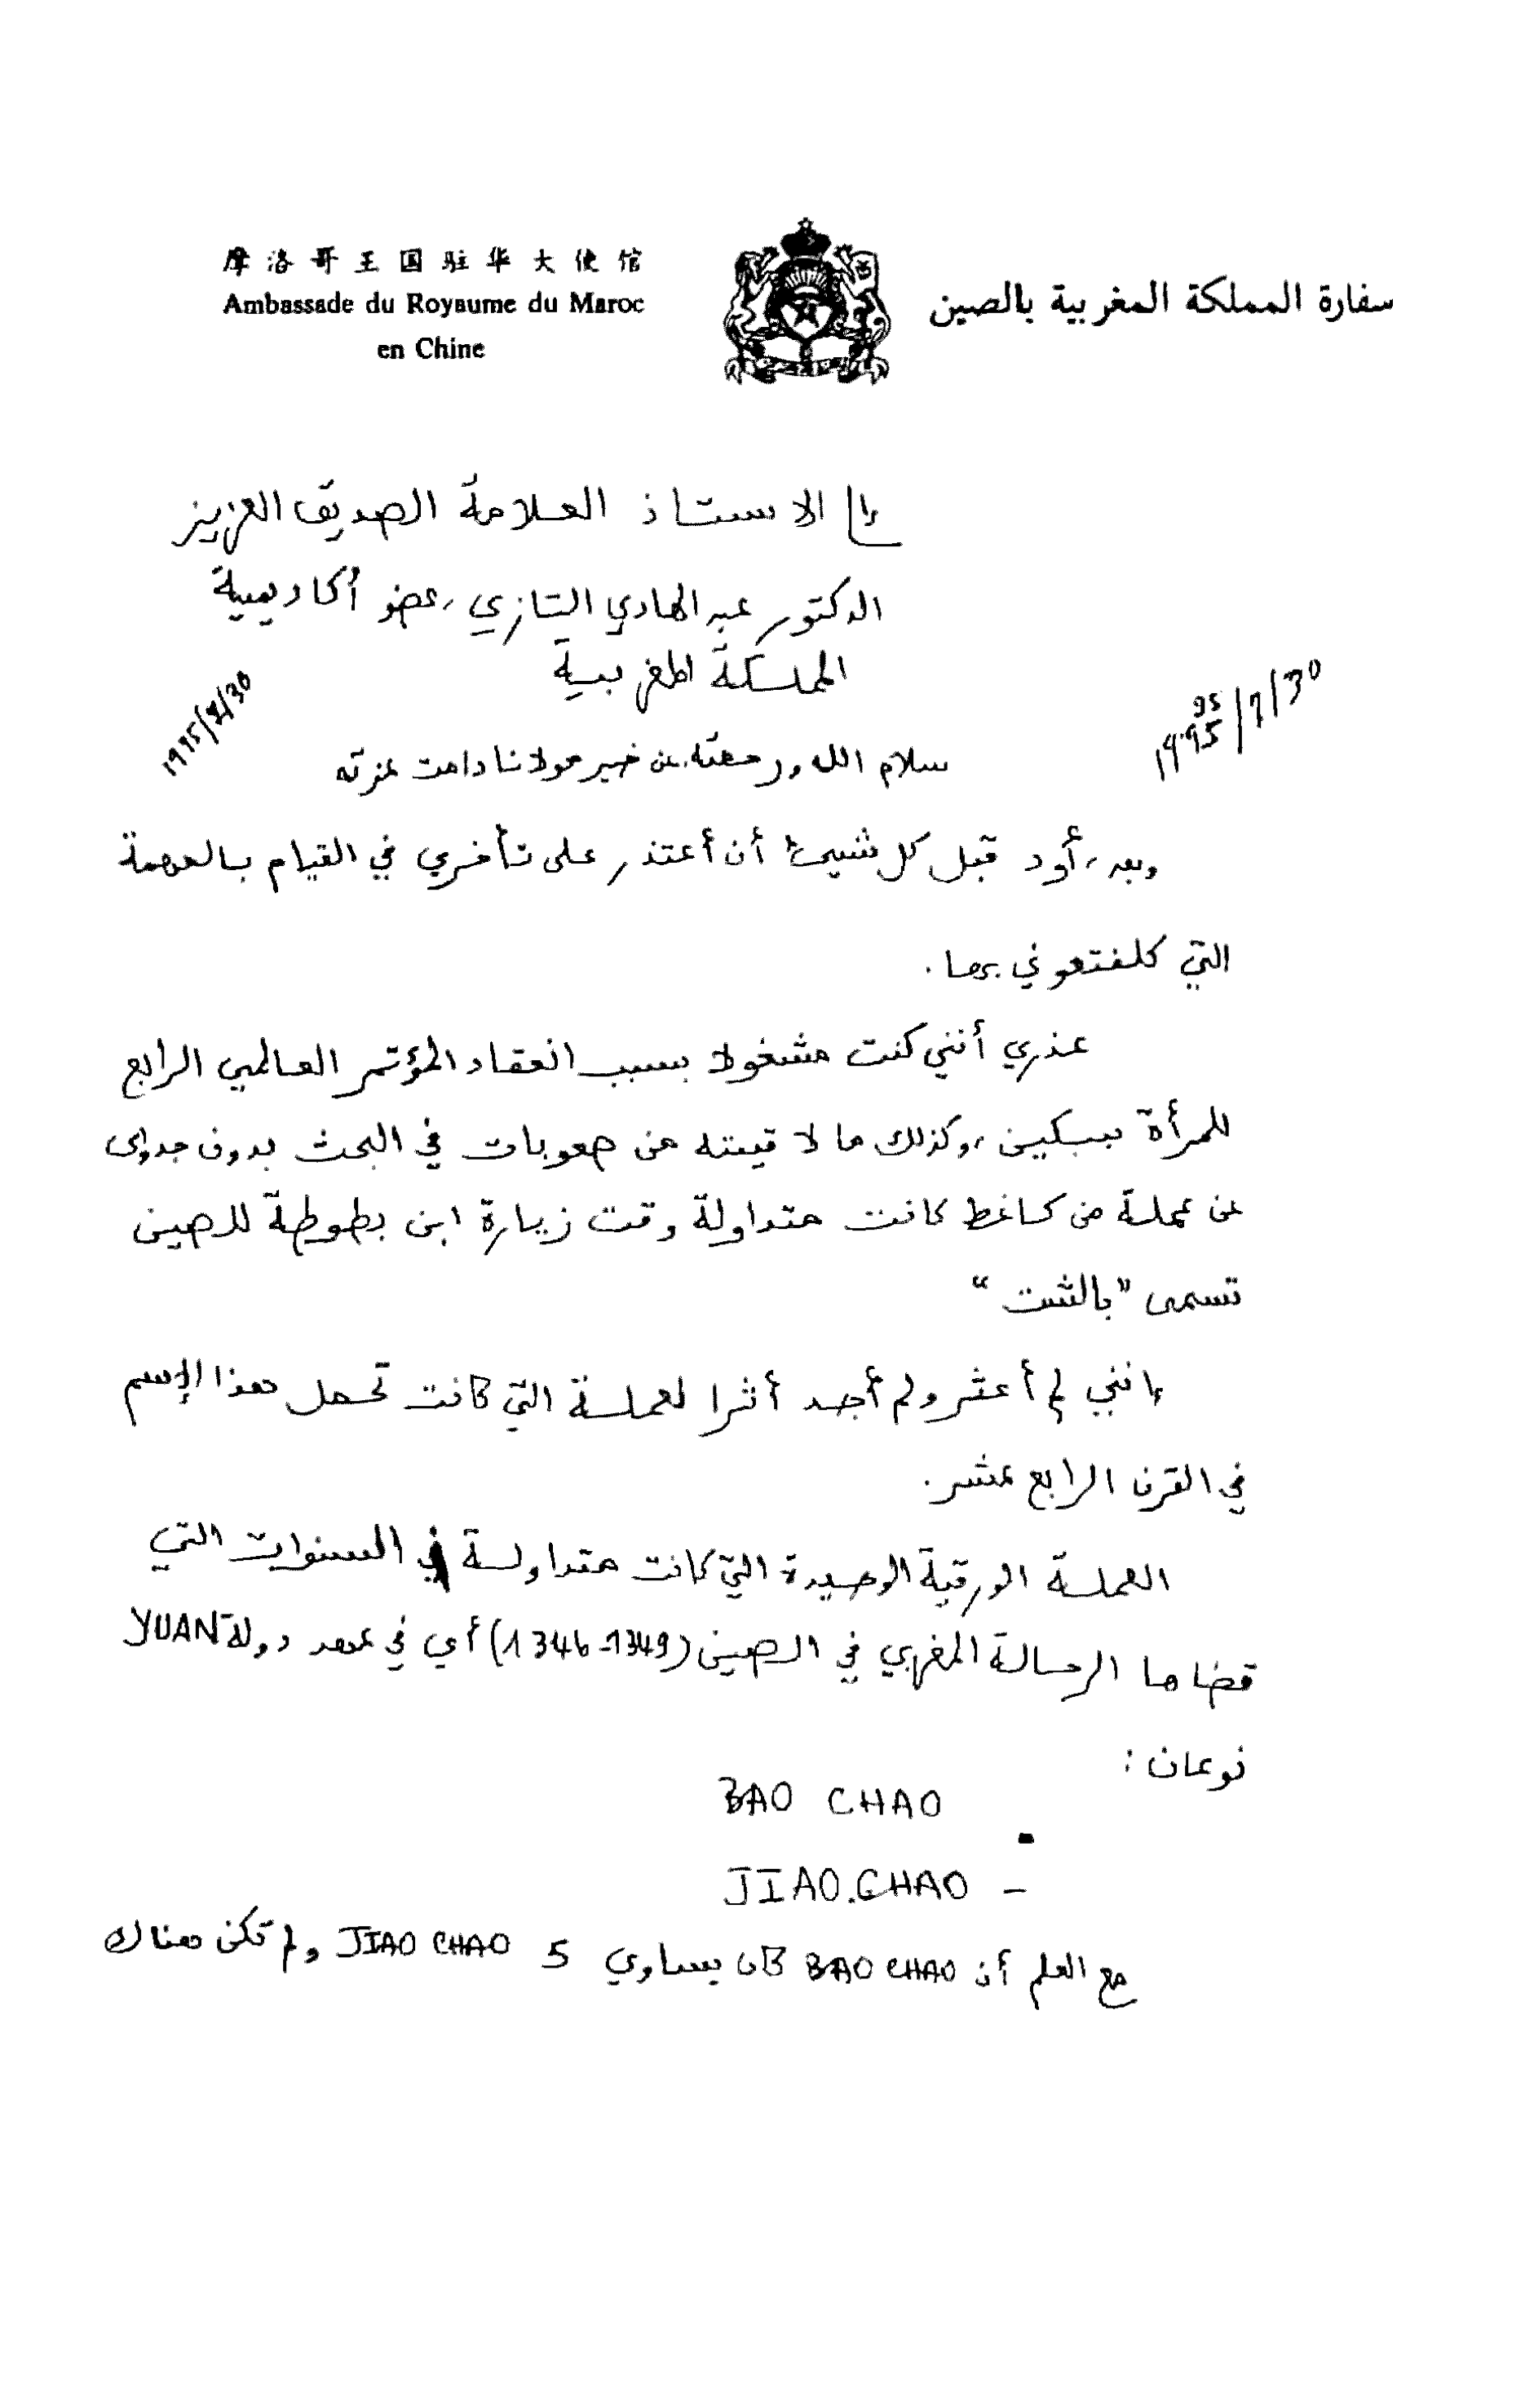 摩洛哥王国驻华大使馆
Ambassade du Royaume du Maroc
en Chine
سفارة المملكة المغربية بالصين
إلى الاستاذ العلامة الصديق العزيز
الدكتور عبد الهادي التازي، عضو أكاديمية
المملكة المغربية
1995/7/30
سلام الله ورحمته عن خير مولانا دامت عزته
وبعد، أود قبل كل شيئ أن أعتذر على تأخري في القيام بالمهمة
التي كلفتموني بها.
عذري أنني كنت مشغولا بسبب انعقاد المؤتمر العالمي الرابع
للمرأة ببيكين، وكذلك ما لا قيته من صعوبات في البحث بدون جدوى
عن عملة من كاغط كانت متداولة وقت زيارة ابن بطوطة للصين
تسمى "بالشت"
إنني لم أعثر ولم أجد أثرا لعملة التي كانت تحمل هذا الإسم
في القرن الرابع عشر.
العملة الورقية الوحيدة التي كانت متداولة في السنوات التي
قضاها الرحالة المغربي في الصين (1346-1349) أي في عهد دولة YUAN
نوعان :
BAO CHAO
- JIAO.CHAO
مع العلم أن BAO CHAO كان يساوي 5 JIAO CHAO ولم تكن هناك